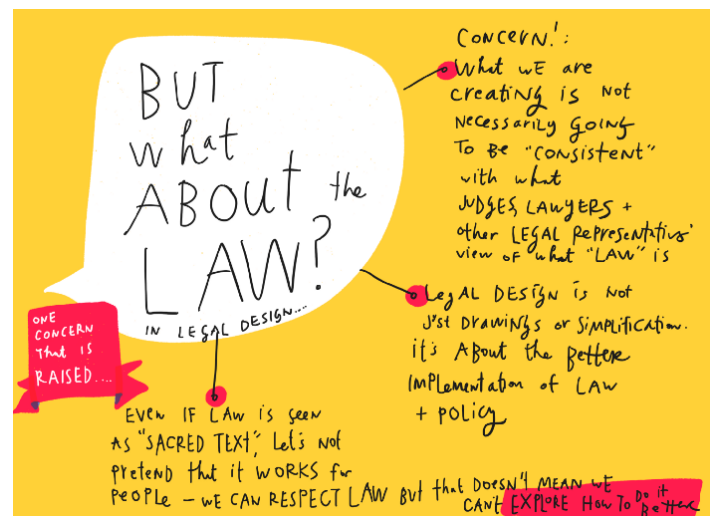 ONE
CONCERN
THAT IS
RAISED....
BUT
what
ABOUT the
LAW?
IN LEGAL DESIGN....
CONCERN!:
What WE are
creating is NOT
necessarily GOING
TO BE "CONSISTENT"
with what
JUDGES, LAWYERS +
other LEGAL Representatives'
view of what "LAW" is
LegAL DESIGN is NOT
JUST DRAWINGS OR SIMPLIFICATION.
it's ABOUT the Better
IMPLEMENTATION OF LAW
+ POLICY
EVEN IF LAW IS SEEN
AS "SACRED TEXT," Let's NOT
pretend that it WORKS for
PEOPLE – WE CAN RESPECT LAW BUT that DOESN'T MEAN WE
CAN'T EXPLORE HOW TO DO it
Better